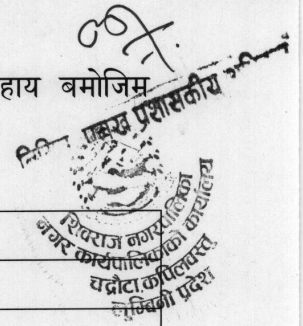 हाय बमोजिम
प्रमुख प्रशासकीय
शिवराज नगरपालिका
नगर कार्यपालिकाको कार्यालय
चन्द्रौटा, कपिलवस्तु
लुम्बिनी प्रदेश